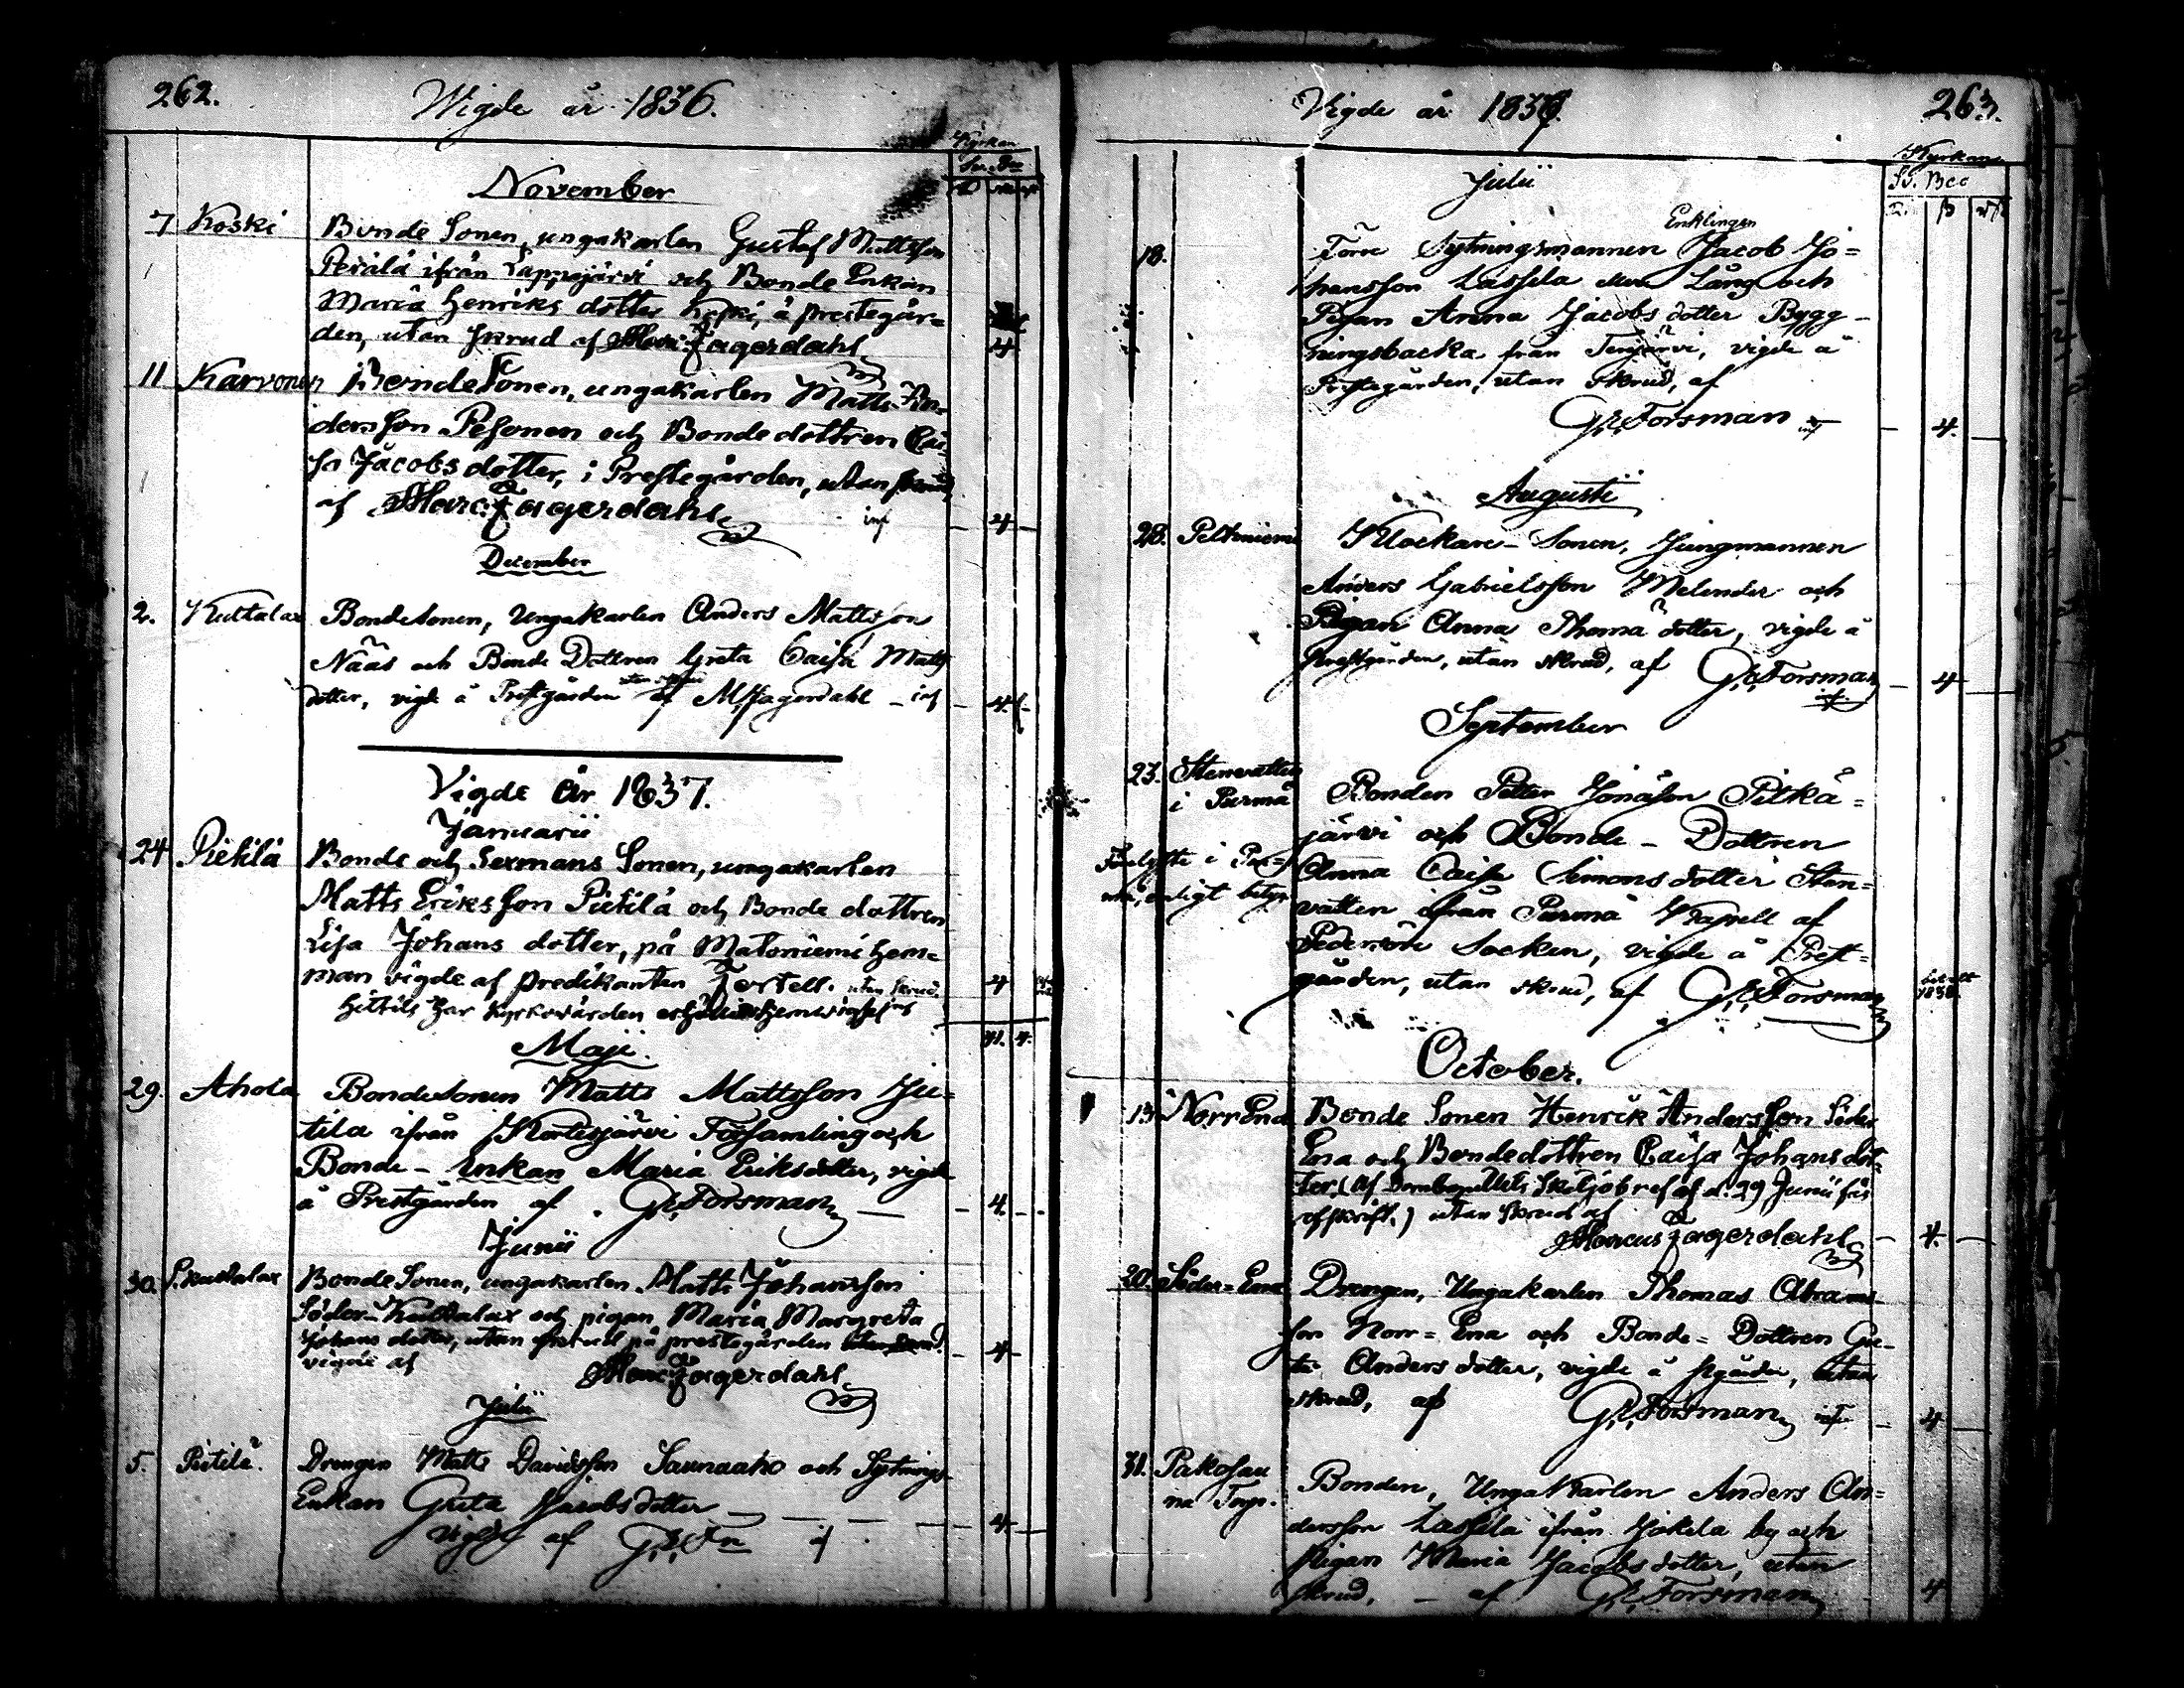 262.
Wigde år 1836.
Kyrkan
November
7 Koski Bonde Sonen, ungakarlen Gustaf Mattsson
Perälä ifrån Lappajärvi och Bonde Enkan
Maria Henriks dotter Koski, å prestegår=
den, utan skrud af Marc: Fagerdahl 4
11 Karvonen Bonde Sonen, ungakarlen Matts An=
dersson Pesonen och Bonde dottren Cai=
sa Jacobs dotter, i Prestegården, utan skrud
af Marc: Fagerdahl inf 4
December
2. Kultalax Bondesonen, Ungakarlen Anders Mattsson
Nääs och Bonde Dottren Greta Caisa Matts
dotter, vigde å Prestgården utan skrud af M Fagerdahl - inf 4
Vigde år 1837.
Januarii
24 Pietilä Bonde och Sexmans Sonen, ungakarlen
Matts Eriksson Pietilä och Bonde dottren
Lisa Johans dotter, på Matoniemi hem=
man vigde af predikanten Forsell. utan skrud. 4
Hittils har Kyrkovärden
Maji.
29. Ahola Bondesonen Matts Mattsson Ju=
tila ifrån Kortesjärvi Församling och
Bonde-Enkan Maria Eriksdotter, vigde
å Prestgården af G. E. Forsman 4
Junii
30. S. Kultalax Bonde Sonen, ungakarlen Matts Johansson
Söder-Kultalax och pigan Maria Margreta
Johans dotter, utan skrud på prestegården
vigde af Marc: Fagerdahl 4
Julii
5. Pietilä. Drengen Matts Davidsson Saunaaho och Sytnings
Enkan Greta Jacobsdotter 4
vigde af G. E. Fn
Vigde år 1837.
263.
Kyrkan
Julii
18. Förre Sytningsmannen Enklingen Jacob Jo=
hansson Lassila Lång och
Pigan Anna Jacobs dotter Bygg-
ningsbacka från Terijärvi, vigde å
Prestegården, utan skrud, af
G. E. Forsman inf 4.
Augusti
28. Peltoniemi Klockare-Sonen, Jungmannen
Anders Gabrielsson Melender och
Pigan Anna Thomä dotter, vigde å
prestgården, utan skrud, af G. E. Forsman 4
September
23. Stenvatten i Purmå Bonden Petter Jonäson Pitkä=
järvi och Bonde-Dottren
Anna Caisa Simons dotter Sten=
vatten ifrån Purmå Kapell af
Pedersöre Socken, vigde å Prest=
gården, utan skrud, af G. E. Forsman
enligt betyg
1838.
October.
13 Norr Ena Bonde Sonen Henrik Andersson Söder
Ena och Bondedottren Caisa Johans dot=
ter. (Af Domkapitlets Skiljobref af d. 29 Junii
afskrift.) utan skrud af
Marcus Fagerdahl 4.
20. Söder=Ena Drengen, Ungakarlen Thomas Abrams-
son Norr=Ena och Bonde=Dottren Gre=
ta Anders dotter, vigde å pgården, utan
skrud, af G. E. Forsman inf 4
31. Pakosau
na Torp. Bonden, Ungakarlen Anders An=
dersson Lassila ifrån Jokela by och
Pigan Maria Jacobsdotter, utan
skrud, - af G. E. Forsman 4